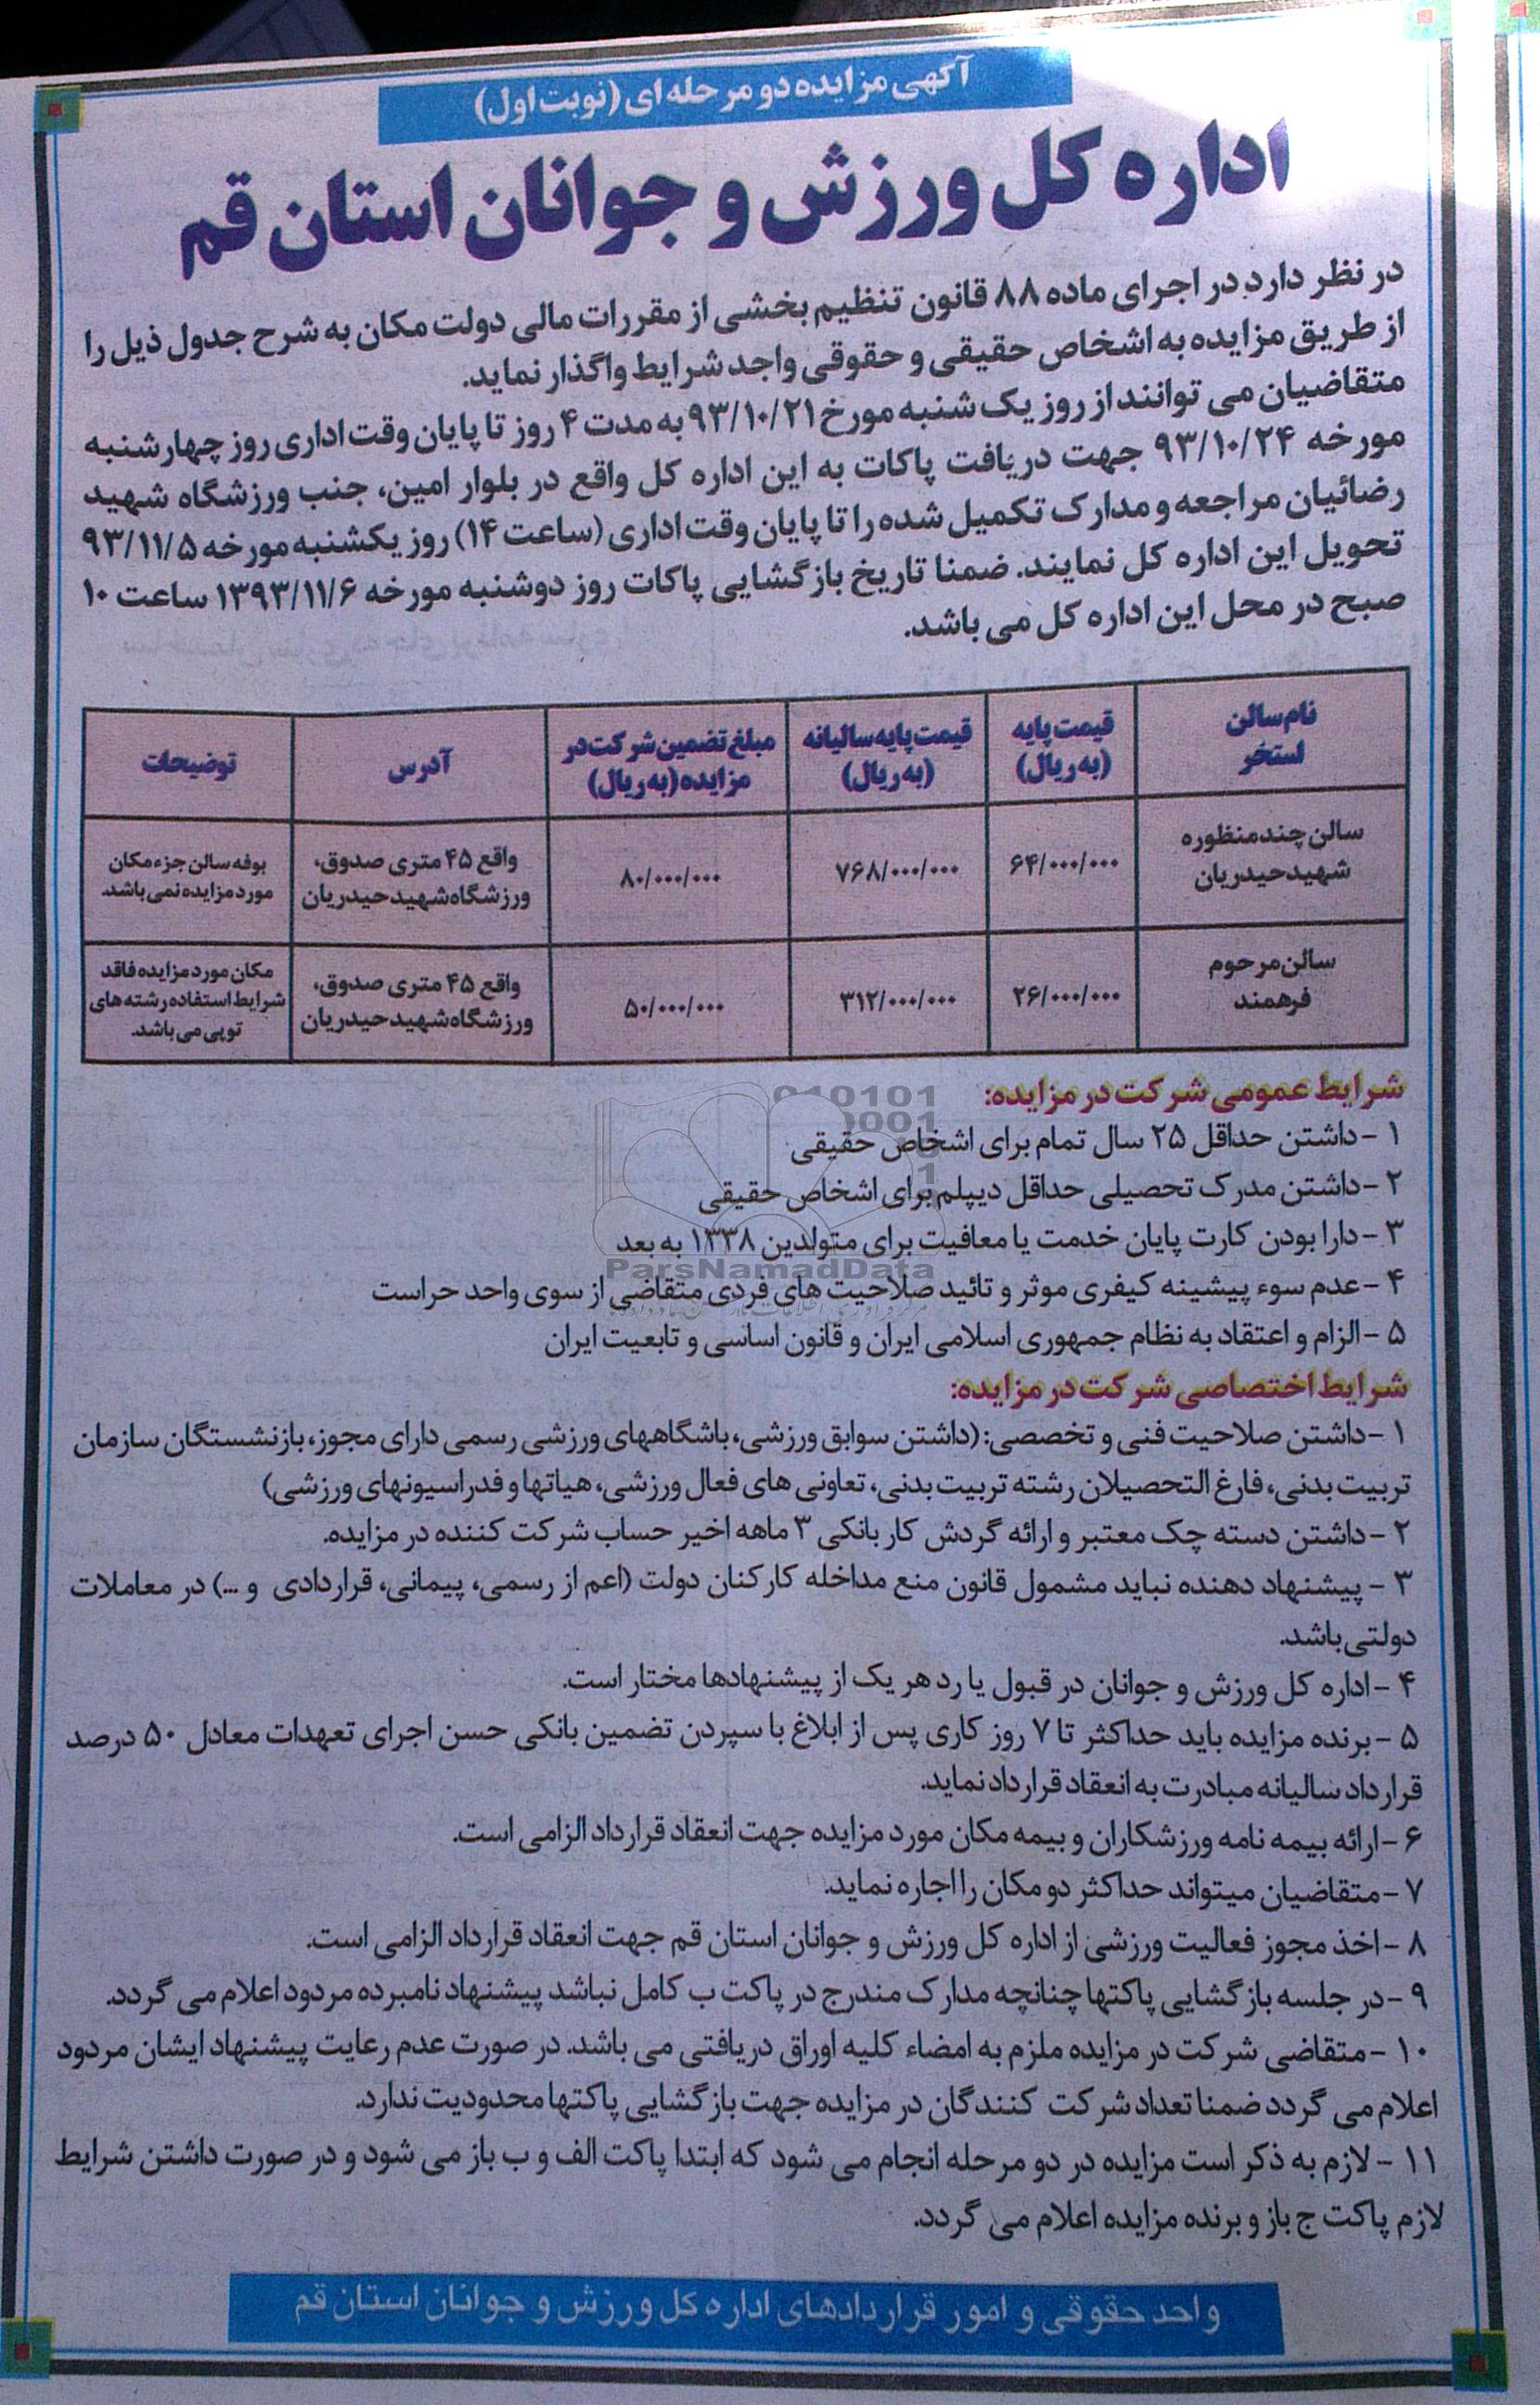 آگهی مزایده دو مرحله ای (نوبت اول)
اداره کل ورزش و جوانان استان قم
در نظر دارد در اجرای ماده ۸۸ قانون تنظیم بخشی از مقررات مالی دولت مکان به شرح جدول ذیل را
از طریق مزایده به اشخاص حقیقی و حقوقی واجد شرایط واگذار نماید.
متقاضیان می توانند از روز یک شنبه مورخ ۹۳/۱۰/۲۱ به مدت ۴ روز تا پایان وقت اداری روز چهارشنبه
مورخه ۹۳/۱۰/۲۴ جهت دریافت پاکات به این اداره کل واقع در بلوار امین، جنب ورزشگاه شهید
رضائیان مراجعه و مدارک تکمیل شده را تا پایان وقت اداری (ساعت ۱۴) روز یکشنبه مورخه ۹۳/۱۱/۵
تحویل این اداره کل نمایند. ضمنا تاریخ بازگشایی پاکات روز دوشنبه مورخه ۱۳۹۳/۱۱/۶ ساعت ۱۰
صبح در محل این اداره کل می باشد.
نام سالن استخر | قیمت پایه (به ریال) | قیمت پایه سالیانه (به ریال) | مبلغ تضمین شرکت در مزایده (به ریال) | آدرس | توضیحات
سالن چند منظوره شهید حیدریان | ۶۴/۰۰۰/۰۰۰ | ۷۶۸/۰۰۰/۰۰۰ | ۸۰/۰۰۰/۰۰۰ | واقع ۴۵ متری صدوق، ورزشگاه شهید حیدریان | بوفه سالن جزء مکان مورد مزایده نمی باشد.
سالن مرحوم فرهمند | ۲۶/۰۰۰/۰۰۰ | ۳۱۲/۰۰۰/۰۰۰ | ۵۰/۰۰۰/۰۰۰ | واقع ۴۵ متری صدوق، ورزشگاه شهید حیدریان | مکان مورد مزایده فاقد شرایط استفاده رشته های توپی می باشد.
شرایط عمومی شرکت در مزایده:
۱ -داشتن حداقل ۲۵ سال تمام برای اشخاص حقیقی
۲ -داشتن مدرک تحصیلی حداقل دیپلم برای اشخاص حقیقی
۳ -دارا بودن کارت پایان خدمت یا معافیت برای متولدین ۱۳۳۸ به بعد
۴ -عدم سوء پیشینه کیفری موثر و تائید صلاحیت های فردی متقاضی از سوی واحد حراست
۵ -الزام و اعتقاد به نظام جمهوری اسلامی ایران و قانون اساسی و تابعیت ایران
ParsNamadData
شرایط اختصاصی شرکت در مزایده:
۱ -داشتن صلاحیت فنی و تخصصی: (داشتن سوابق ورزشی، باشگاههای ورزشی رسمی دارای مجوز، بازنشستگان سازمان
تربیت بدنی، فارغ التحصیلان رشته تربیت بدنی، تعاونی های فعال ورزشی، هیاتها و فدراسیونهای ورزشی)
۲ -داشتن دسته چک معتبر و ارائه گردش کار بانکی ۳ ماهه اخیر حساب شرکت کننده در مزایده.
۳ - پیشنهاد دهنده نباید مشمول قانون منع مداخله کارکنان دولت (اعم از رسمی، پیمانی، قراردادی و ...) در معاملات
دولتی باشد.
۴ -اداره کل ورزش و جوانان در قبول یا رد هر یک از پیشنهادها مختار است.
۵ -برنده مزایده باید حداکثر تا ۷ روز کاری پس از ابلاغ با سپردن تضمین بانکی حسن اجرای تعهدات معادل ۵۰ درصد
قرارداد سالیانه مبادرت به انعقاد قرارداد نماید.
۶ -ارائه بیمه نامه ورزشکاران و بیمه مکان مورد مزایده جهت انعقاد قرارداد الزامی است.
۷ -متقاضیان میتواند حداکثر دو مکان را اجاره نماید.
۸ -اخذ مجوز فعالیت ورزشی از اداره کل ورزش و جوانان استان قم جهت انعقاد قرارداد الزامی است.
۹ -در جلسه بازگشایی پاکتها چنانچه مدارک مندرج در پاکت ب کامل نباشد پیشنهاد نامبرده مردود اعلام می گردد.
۱۰ -متقاضی شرکت در مزایده ملزم به امضاء کلیه اوراق دریافتی می باشد. در صورت عدم رعایت پیشنهاد ایشان مردود
اعلام می گردد ضمنا تعداد شرکت کنندگان در مزایده جهت بازگشایی پاکتها محدودیت ندارد.
۱۱ -لازم به ذکر است مزایده در دو مرحله انجام می شود که ابتدا پاکت الف و ب باز می شود و در صورت داشتن شرایط
لازم پاکت ج باز و برنده مزایده اعلام می گردد.
واحد حقوقی و امور قراردادهای اداره کل ورزش و جوانان استان قم